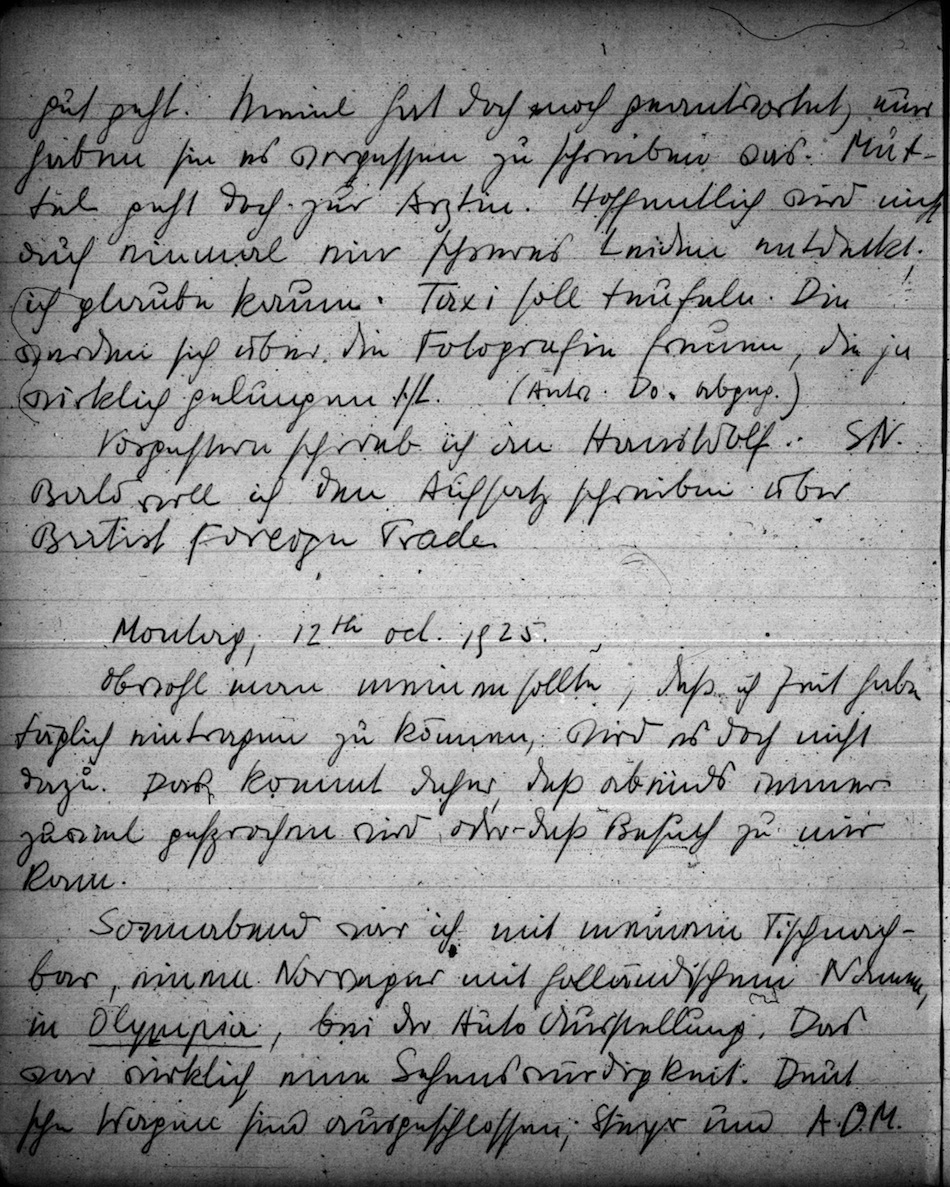 gut geht. Meine hat doch noch geantwortet, nur
haben sie es vergessen zu schreiben was. Mut-
tel geht doch zur Ärztin. Hoffentlich wird nicht
auch einmal ein schweres Leiden entdeckt;
ich glaube kaum. Taxi soll teufeln. Die
werden sich über die Fotografie freuen, die ja
wirklich gelungen ist. (Antw. Do. abgeg.)
Vorgestern schrieb ich an Hanswolf. SN.
Bald will ich den Aufsatz schreiben über
British Foreign Trade.
Montag, 12th oct. 1925.
Obwohl man meinen sollte, daß ich Zeit habe
täglich eintragen zu können, wird es doch nicht
dazu. Das kommt daher, daß abends immer
zuviel gesprochen wird, oder daß Besuch zu mir
kam.
Sonnabend war ich mit meinem Tischnach-
bar, einem Norweger mit holländischem Namen,
in Olympia, bei der Auto Ausstellung. Das
war wirklich eine Sehenswürdigkeit. Deut
sche Wagen sind ausgeschlossen; Steyr und A.D.M.